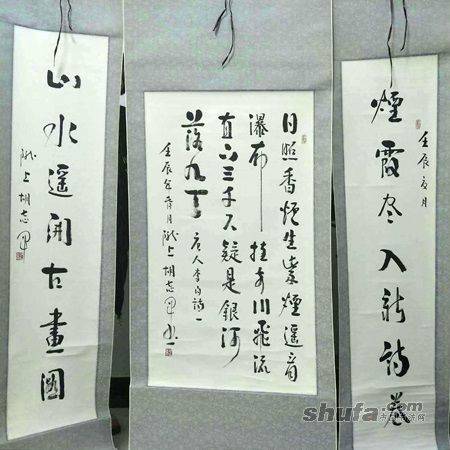 煙霞尽入新詩卷
壬辰夏月
日照香炉生紫煙遥看
瀑布挂前川飛流
直下三千尺疑是銀河
落九天
唐人李白詩一
壬辰年 月陇上胡志军书
山水遥開古畫圖
陇上胡志军
shufa.com